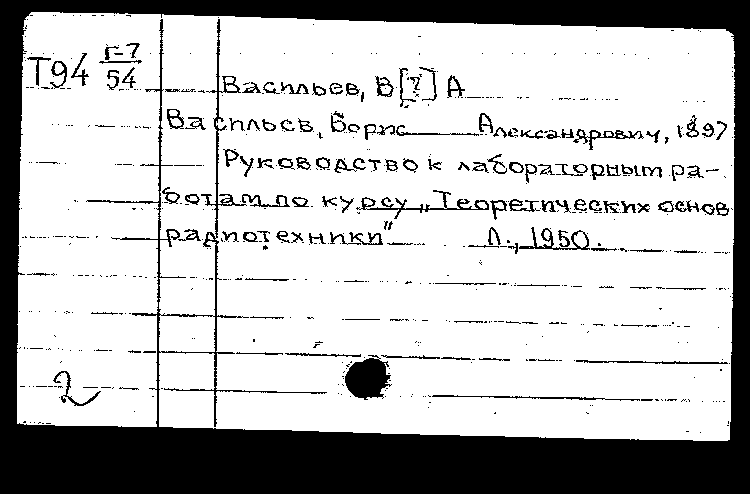 Т94 Г-7
54
Васильев, В [?] А
Васильев, Борис Александрович, 1897
Руководство к лабораторным ра-
ботам по курсу „Теоретических основ
радиотехники" Л., 1950.
2